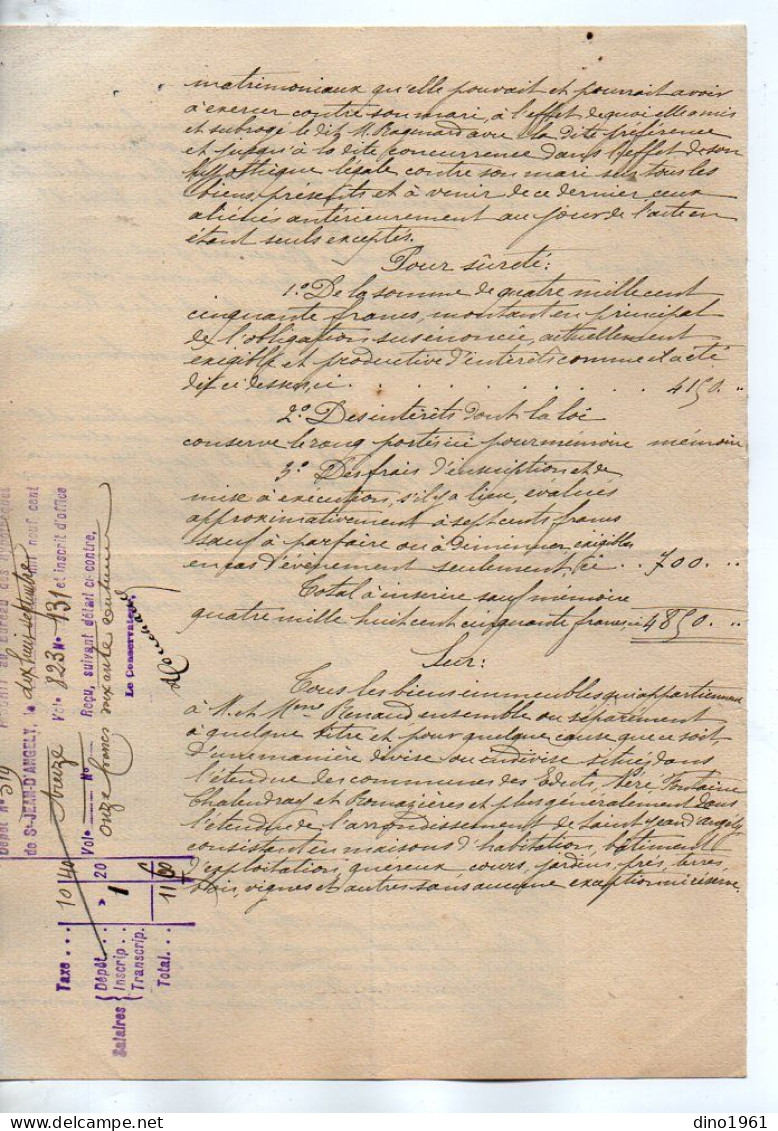 matrimoniaux qu'elle pouvait et pourrait avoir
à exercer contre son mari, à l'effet de quoi elle a mis
et subrogé le dit M. avec la dite préférence
et jusqu'à la dite concurrence dans l'effet de son
hypothèque légale contre son mari sur tous les
biens, présents et à venir de ce dernier ceux
aliénés antérieurement au jour de l'acte en
étant seuls exceptés.
Pour sûreté:
1.° De la somme de quatre mille cent
cinquante francs, montant en principal
de l'obligation susénoncée, actuellement
exigible et productive d'intérêts comme il a été
dit ci dessus, ci . . . . . . . . 4150. "
2.° Des intérêts dont la loi
conserve le rang portés ici pour mémoire mémoire
3.° Des frais d'inscription et de
mise à exécution, s'il y a lieu, évalués
approximativement à sept cents francs
sauf à parfaire ou à diminuer, exigibles
en cas d'événement seulement, ci . . 700. "
Total à inscrire sauf mémoire
quatre mille huit cent cinquante francs, ci 4850. "
Sur:
Tous les biens immeubles qui appartiennent
à M. et Mme Renaud ensemble ou séparément
à quelque titre et pour quelque cause que ce soit,
d'une manière divise ou indivise situés dans
l'étendue des communes des Eduts, Néré, Fontaine
Chalendray et Romazières et plus généralement dans
l'étendue de l'arrondissement de Saint Jean d'Angély
consistant en maisons d'habitation, bâtiments
d'exploitation, quéreux, cours, jardins, prés, terres
bois, vignes et autres sans aucune exception ni réserve.
Dépôt N° 519
de St-JEAN-D'ANGELY, le dix huit septembre mil neuf cent
treize Vol. 823 N° 131 et inscrit d'office
Vol. N° Reçu, suivant détail ci-contre,
onze francs soixante centimes
Le Conservateur,
Taxe . . . 10 40
Salaires
Dépôt . . . » 20
Inscrip. . . 1
Transcrip.
Total. . . 11 60
dino1961